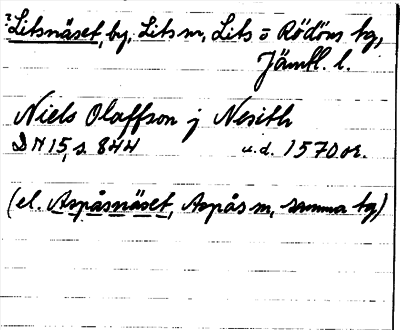 ?Litsnäset, by, Lits sn, Lits o Rödöns tg,
Jämtl. l.
Niels Olaffson j Nesith
DN 15, s. 844 u.d. 1570 or.
(el. Aspåsnäset, Aspås sn, samma tg)